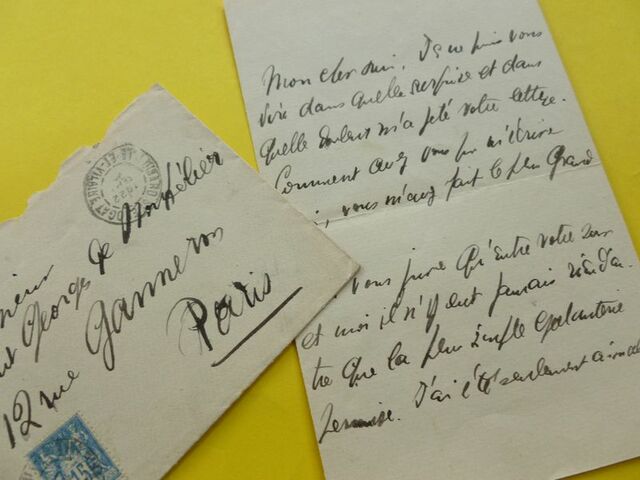 Mon cher ami, Je ne puis vous
dire dans quelle surprise et dans
quelle douleur m'a jeté votre lettre.
Comment avez vous pu m'écrire
, vous m'avez fait le plus grand
vous jure qu'entre votre
et moi il n'y eut jamais rien d'a
tre que la plus simple galanterie
permise. J'ai été seulement aimable
Georges de
12 rue Ganneron
Paris
ET-VILAINE
15